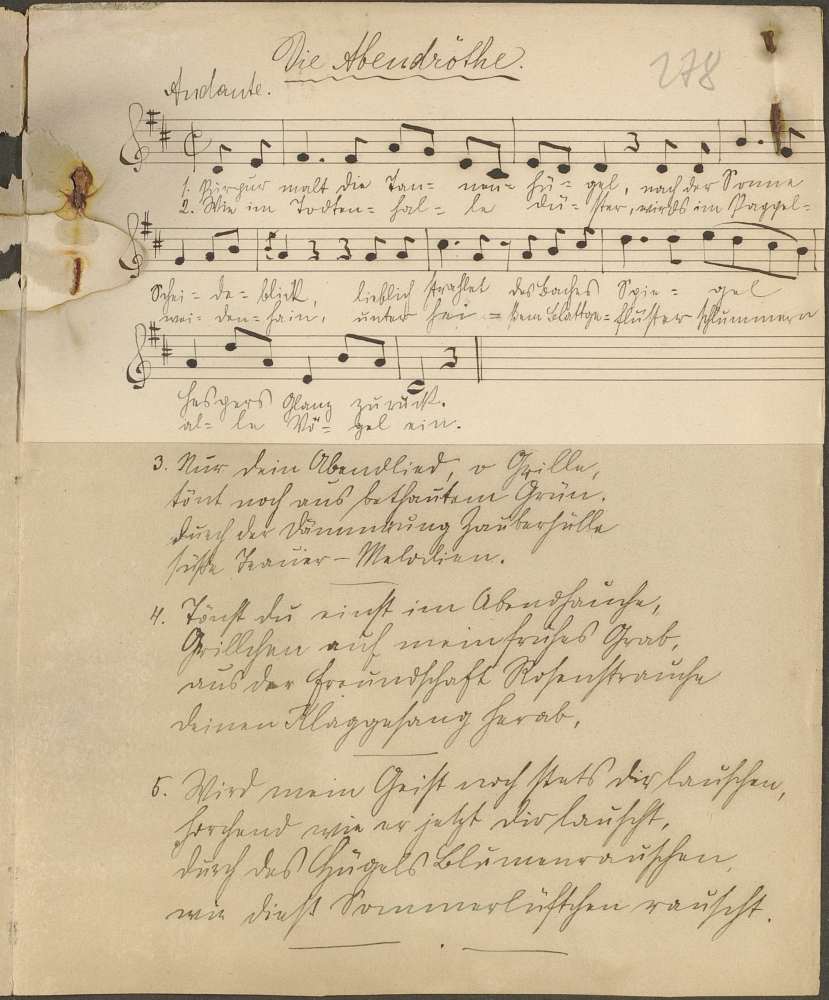 Die Abendröthe.
278
Andante.
1. Purpur malt die Tan= nen= hü= gel, nach der Sonne
2. Wie im Todten= hal= le dü= ster, wird's im Pappel=
Schei= de= blick, lieblich strahlet des Baches Spie= gel
wei= den= hain, unter hei= Blattge= flüster schlummern
Hespers Glanz zurück.
al= le Vö= gel ein.
3. Nur dein Abendlied, o Grille,
tönt noch aus bethautem Grün,
durch der Dämmrung Zauberhülle
süße Trauer-Melodien.
4. Tönst du einst im Abendhauche,
Grillchen auf mein frühes Grab,
aus der Freundschaft Rosenstrauche
deinen Klaggesang herab,
5. Wird mein Geist noch stets dir lauschen,
horchend wie er jetzt dir lauscht,
durch des Hügels Blumenrauschen,
wie dieß Sommerlüftchen rauscht.